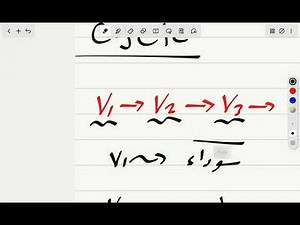 Cycle
V₁ → V₂ → V₃ →
V₁ ⇝ سوداء